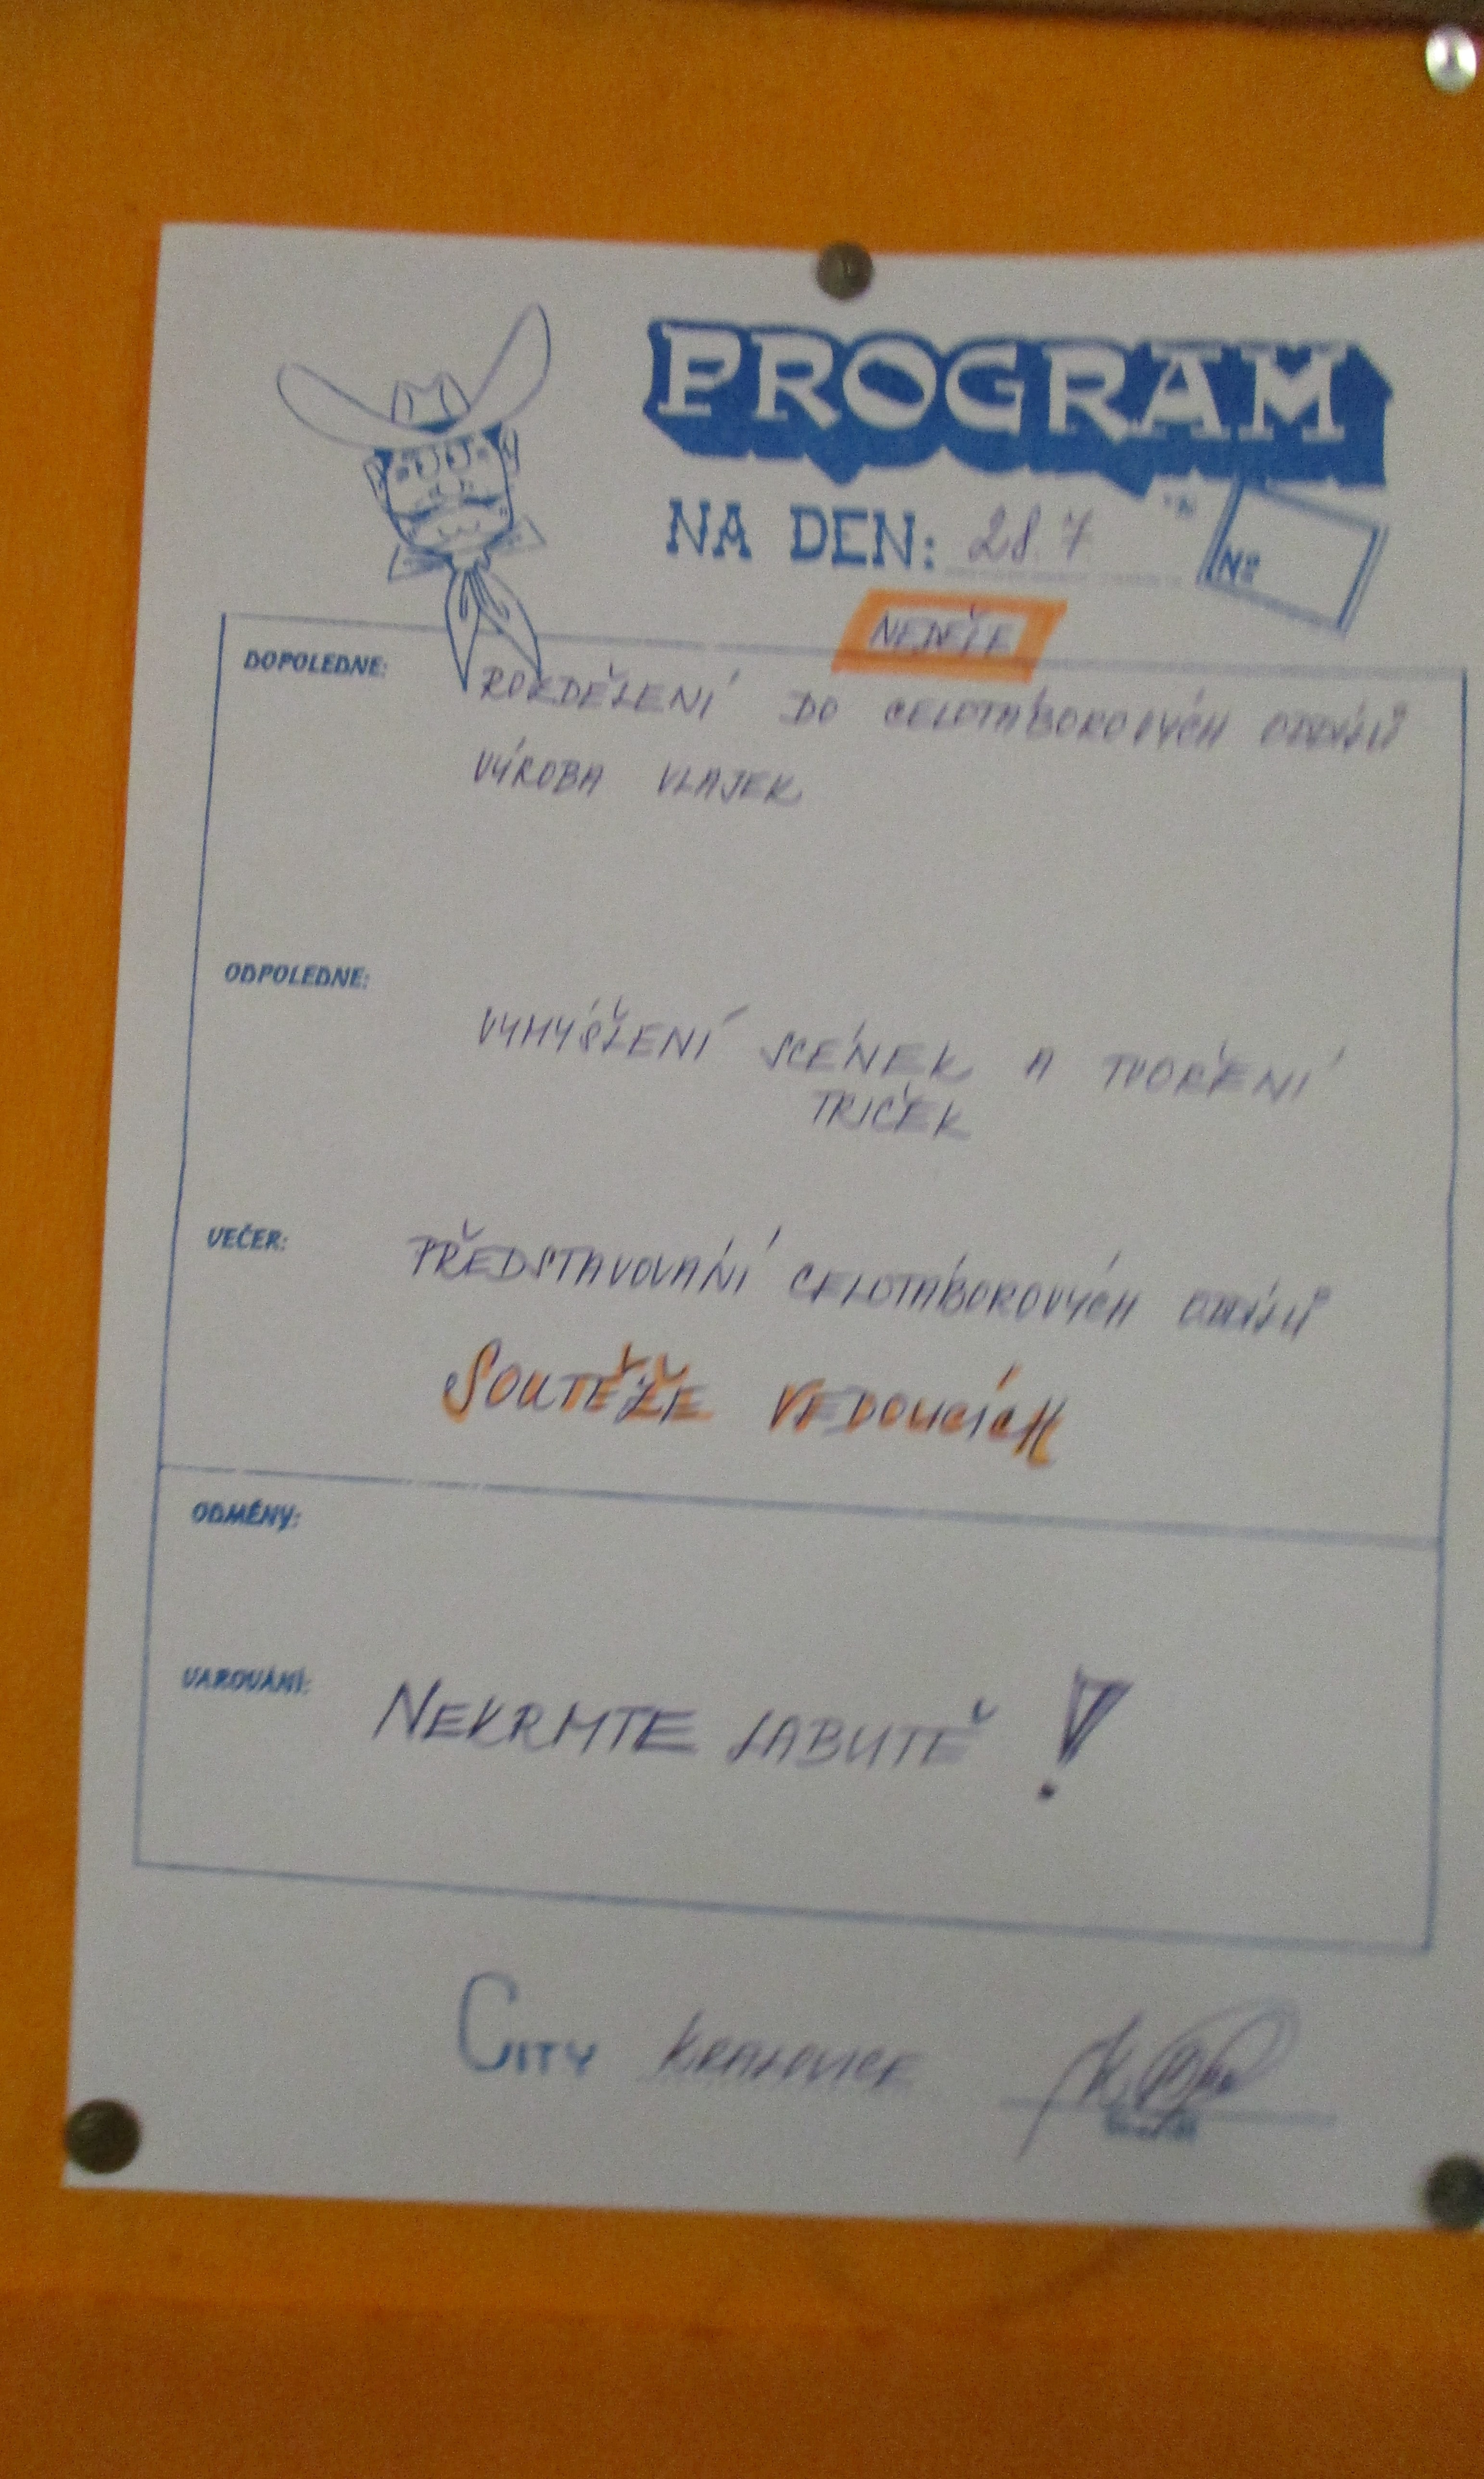 PROGRAM
NA DEN: 28.7
Nº
NEDĚLE
DOPOLEDNE: ROZDĚLENÍ DO CELOTÁBOROVÝCH ODDÍLŮ
VÝROBA VLAJEK
ODPOLEDNE:
VYMÝŠLENÍ SCÉNEK A TVOŘENÍ
TRIČEK
VEČER: PŘEDSTAVOVÁNÍ CELOTÁBOROVÝCH ODDÍLŮ
SOUTĚŽE VEDOUCÍCH
ODMĚNY:
VAROVÁNÍ: NEKRMTE LABUTĚ!
CITY KRALOVICE